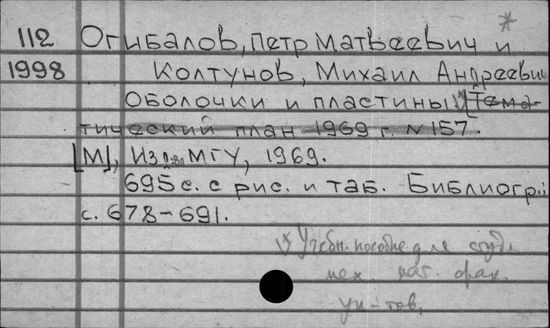 112 Огибалов, Петр Матвеевич и
1998 Колтунов, Михаил Андреевич
Оболочки и пластины. [Тема-
тический план 1969 г. №157.
[М], Изд-во МГУ, 1969.
695 с. с рис. и таб. Библиогр.:
с. 678-691.
Учебн. пособие для студ.
мех. мат. фак.
ун-тов.